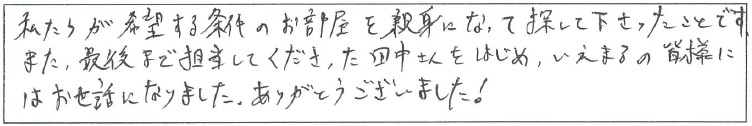 私たちが希望する条件のお部屋を親身になって探して下さったことです
また、最後まで担当してくださった田中さんをはじめ、いえまるの皆様に
はお世話になりました。ありがとうございました!